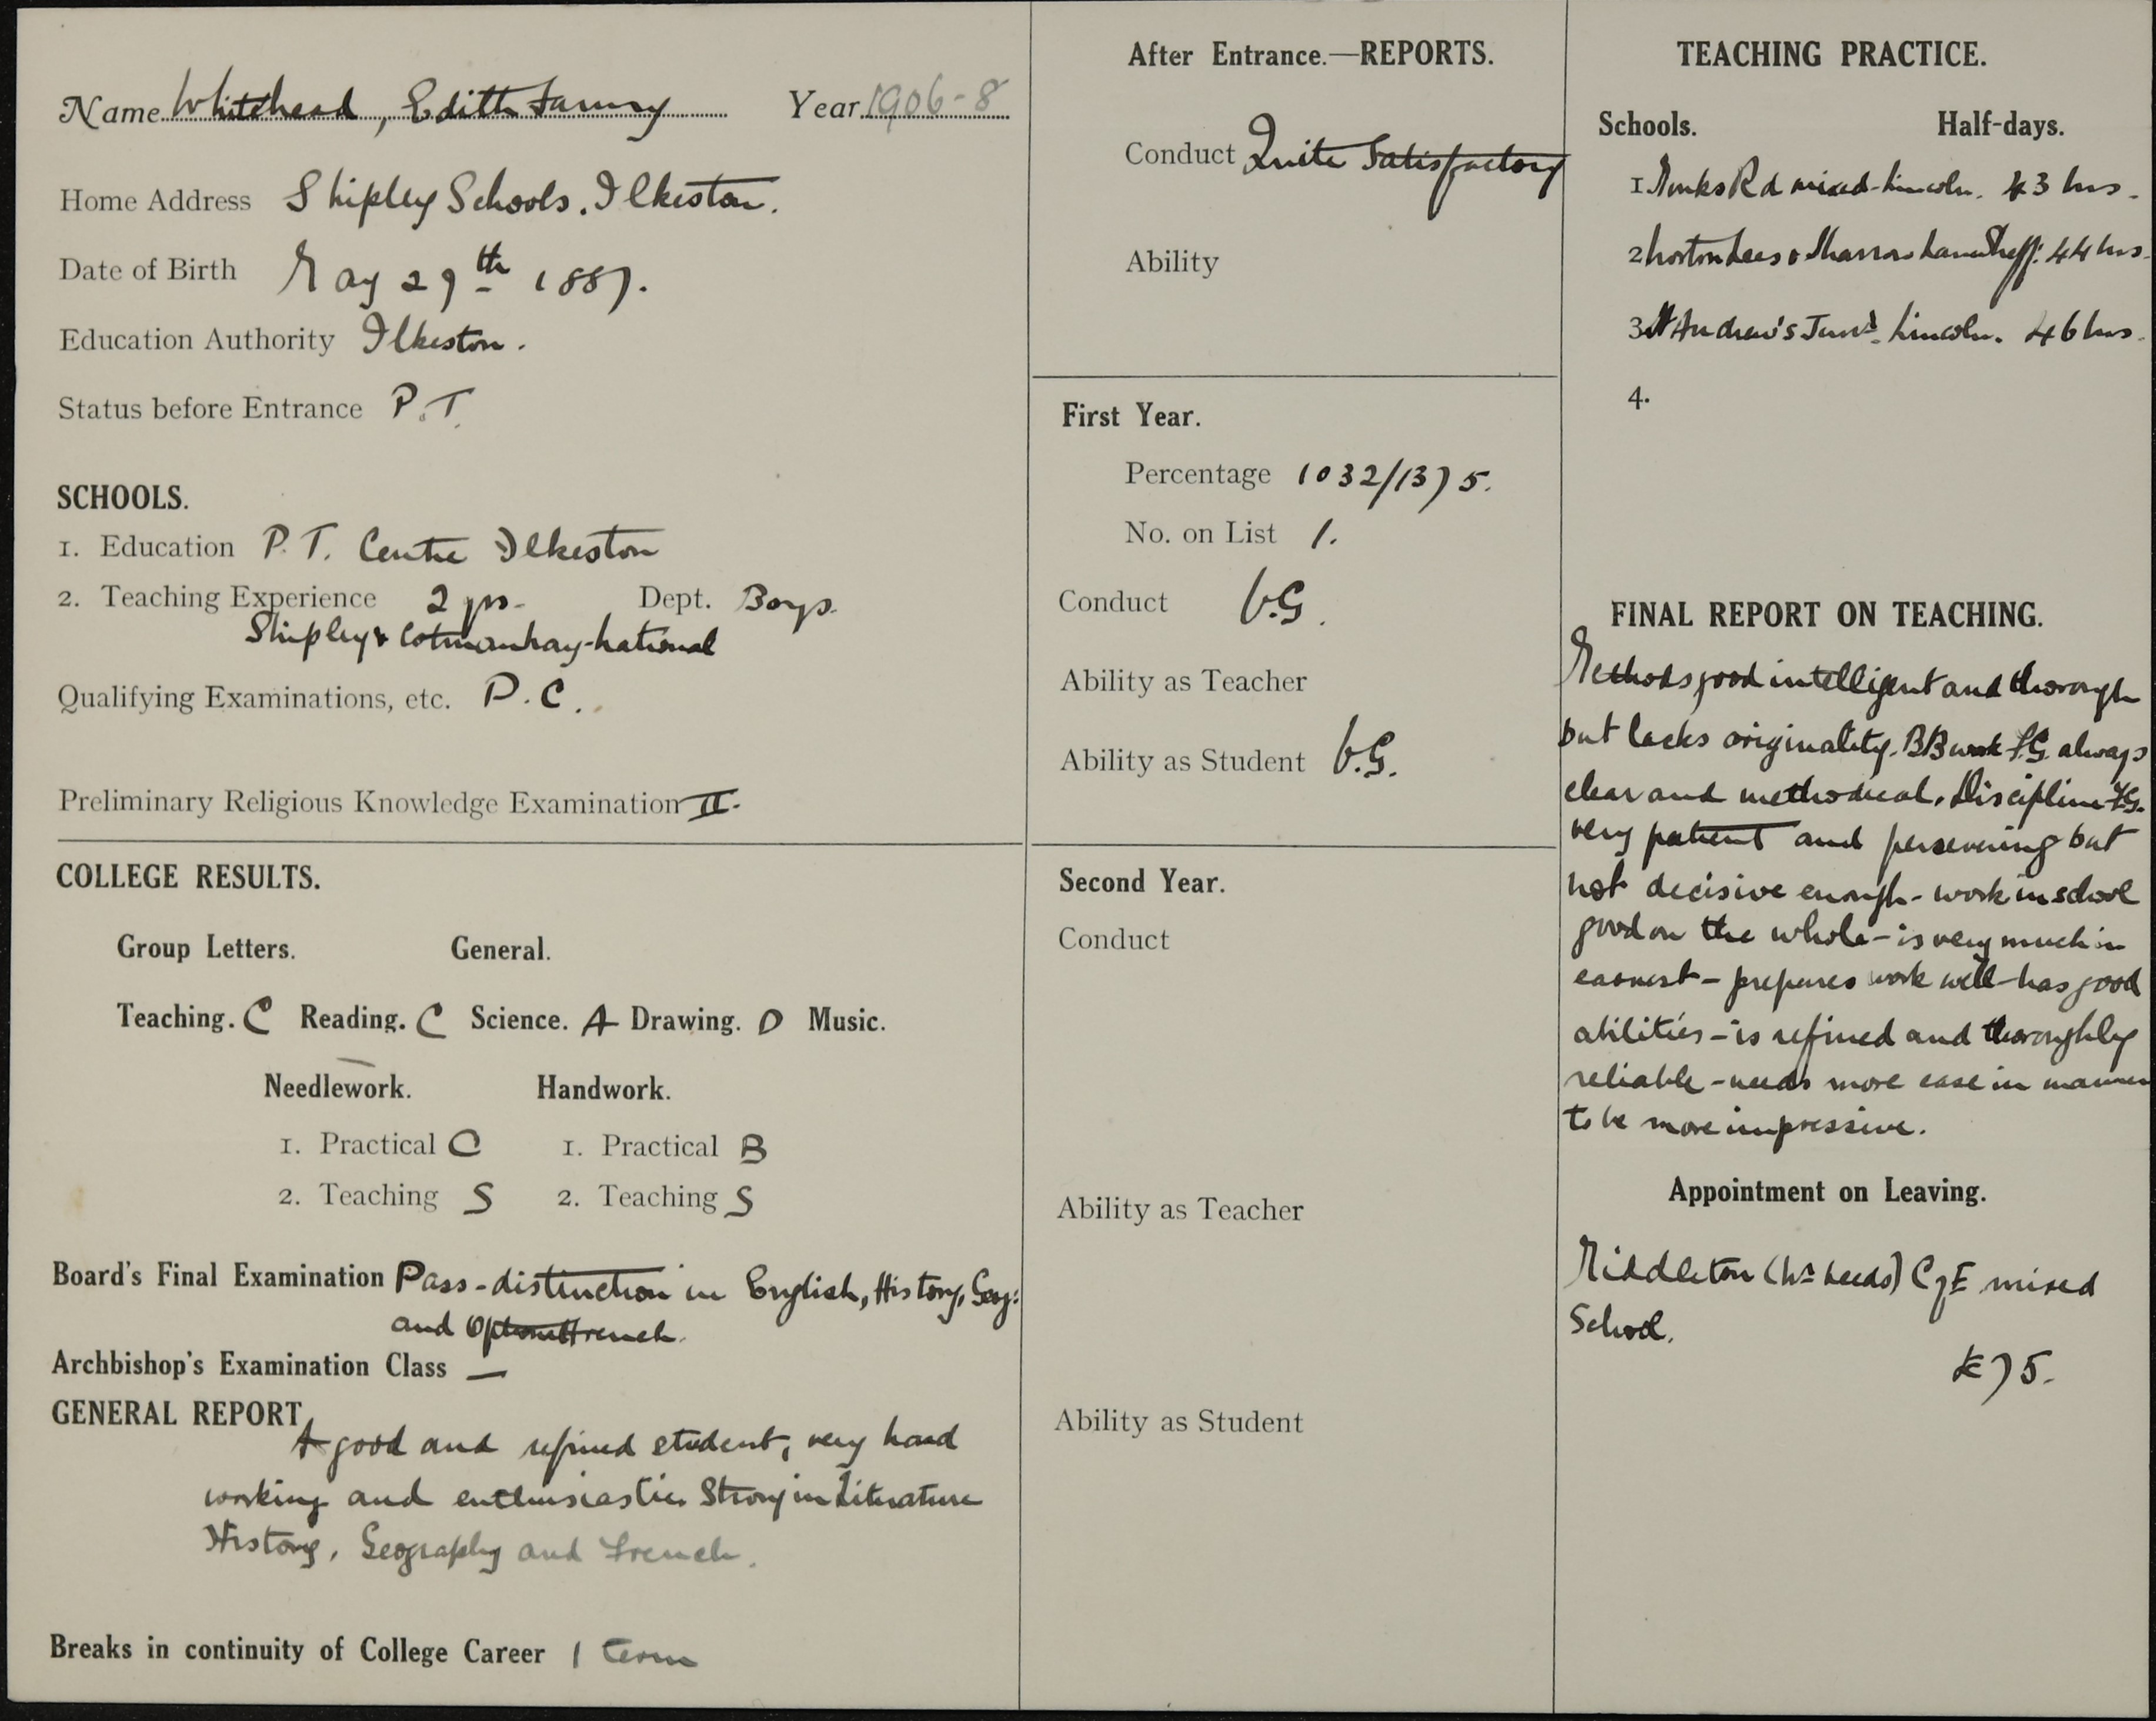 Name Whitehead, Edith Fanny Year 1906-8
Home Address Shipley Schools. Ilkeston.
Date of Birth May 29th 1887.
Education Authority Ilkeston.
Status before Entrance P.T.
SCHOOLS.
1. Education P.T. Centre Ilkeston
2. Teaching Experience 2 yrs. Dept. Boys.
Shipley & Cotmanhay-National
Qualifying Examinations, etc. P.C.
Preliminary Religious Knowledge Examination II.
COLLEGE RESULTS.
Group Letters. General.
Teaching. C Reading. C Science. A Drawing. D Music.
Needlework. Handwork.
1. Practical C 1. Practical B
2. Teaching S 2. Teaching S
Board's Final Examination Pass-distinction in English, History, Geog:
and Optional French.
Archbishop's Examination Class —
GENERAL REPORT
A good and refined student, very hard
working and enthusiastic. Strong in Literature
History, Geography and French.
Breaks in continuity of College Career 1 term
After Entrance.—REPORTS.
Conduct Quite Satisfactory
Ability
First Year.
Percentage 1032/1375.
No. on List 1.
Conduct V.G.
Ability as Teacher
Ability as Student V.G.
Second Year.
Conduct
Ability as Teacher
Ability as Student
TEACHING PRACTICE.
Schools. Half-days.
1 Monks Rd mixed-Lincoln. 43 hrs.
2 Norton Lees & Sharrow Lane Sheff: 44 hrs.
3 St Andrew's Junr. Lincoln. 46 hrs.
4.
FINAL REPORT ON TEACHING.
Methods good intelligent and thorough
but lacks originality. BB work F.G. always
clear and methodical. Discipline F.G.
very patient and persevering but
not decisive enough - work in school
good on the whole - is very much in
earnest - prepares work well - has good
abilities - is refined and thoroughly
reliable - needs more ease in manner
to be more impressive.
Appointment on Leaving.
Middleton (Nr Leeds) C of E mixed
School.
£75.